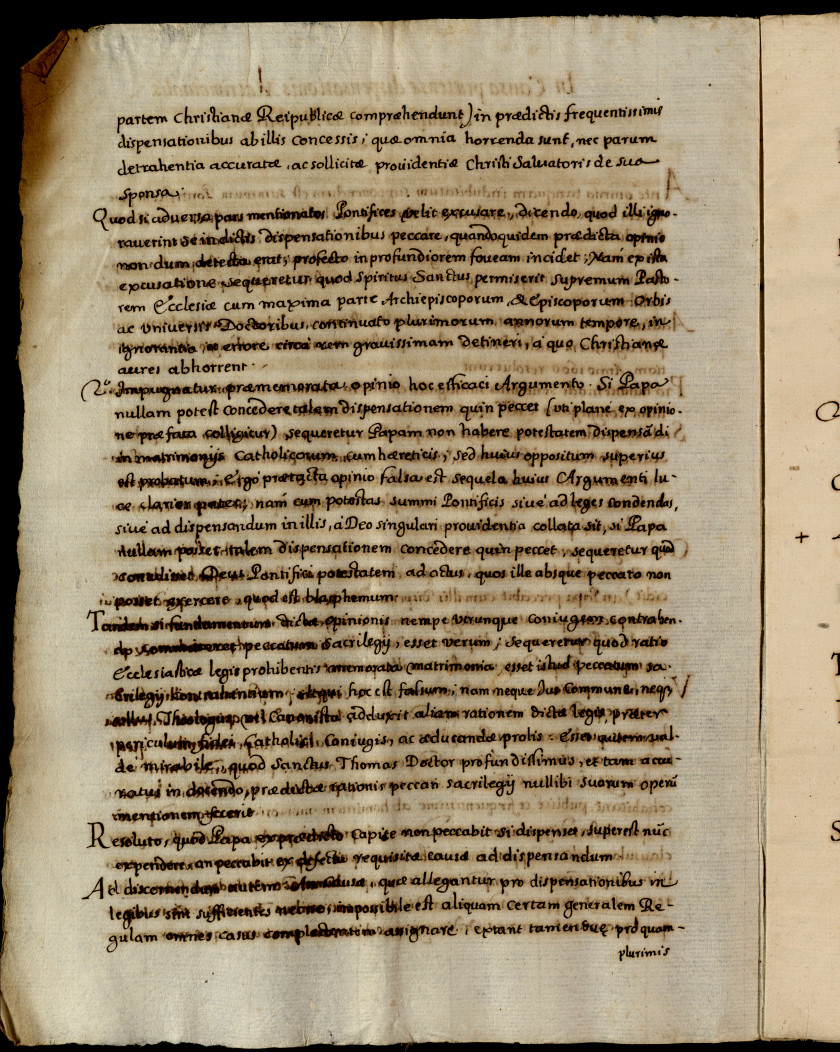 partem Christianæ Reipublicæ compræhendunt) in prædictis frequentissimis
dispensationibus ab illis concessis; quæ omnia horrenda sunt, nec parum
detrahentia accuratæ, ac sollicitæ prouidentiæ Christi Saluatoris de sua
sponsa.
Quod si aduersa pars mentionatos Pontifices velit excusare, dicendo, quod illi igno-
rauerint se in dictis dispensationibus peccare, quandoquidem prædicta opinio
non dum detecta erat; profecto in profundiorem foueam incidet; Nam ex ista
excusatione sequeretur quod Spiritus Sanctus permiserit supremum Pasto-
rem Ecclesiæ cum maxima parte Archiepiscoporum, & Episcoporum Orbis
ac vniuersis Doctoribus, continuato plurimorum annorum tempore, in
ignorantia, ac errore circa rem grauissimam detineri, a quo Christianæ
aures abhorrent.
2.º Impugnatur præmemorata opinio hoc efficaci Argumento. Si Papa
nullam potest concedere talem dispensationem quin peccet (vti plane ex opinio-
ne præfata colligitur), sequeretur Papam non habere potestatem dispensādi
in matrimonijs Catholicorum cum hæreticis; sed huius oppositum superius
est probatum; Ergo prætacta opinio falsa est sequela huius Argumenti lu-
ce clarior patet; nam cum potestas summi Pontificis siue ad leges condendas,
siue ad dispensandum in illis, a Deo singulari prouidentia collata sit, si Papa
nullam posset talem dispensationem concedere quin peccet, sequeretur quod
Deus Pontifici potestatem ad actus, quos ille absque peccato non
posset exercere, quod est blasphemum.
Tandem si fundamentum dictæ opinionis nempe vtrunque coniugem contrahen-
do peccatum Sacrilegij, esset verum; Sequeretur quod ratio
Ecclesiasticæ legis prohibentis memorata matrimonia, esset istud peccatum sa-
crilegij contrahentium; hoc est falsum; nam neque Ius Commune, neq
Theologus, vel Canonista adduxit aliam rationem dictæ legis, præter
periculum fidei, Catholici Coniugis, ac æducandæ prolis. Esset quidem val-
de mirabile, quod Sanctus Thomas Doctor profundissimus, et tam accu-
ratus in docendo, prædictæ rationis peccati sacrilegij nullibi suorum operū
mentionem fecerit.
Resoluto, quod Papa ex prædicto capite non peccabit si dispenset, superest nūc
expendere, an peccabit ex defectu requisitæ causæ ad dispensandum.
Ad discernendas autem quæ allegantur pro dispensationibus in
legibus sint sufficientes necne, impossibile est aliquam certam generalem Re-
gulam omnes casus complectentem assignare; extant tamen duæ pro quam-
plurimis